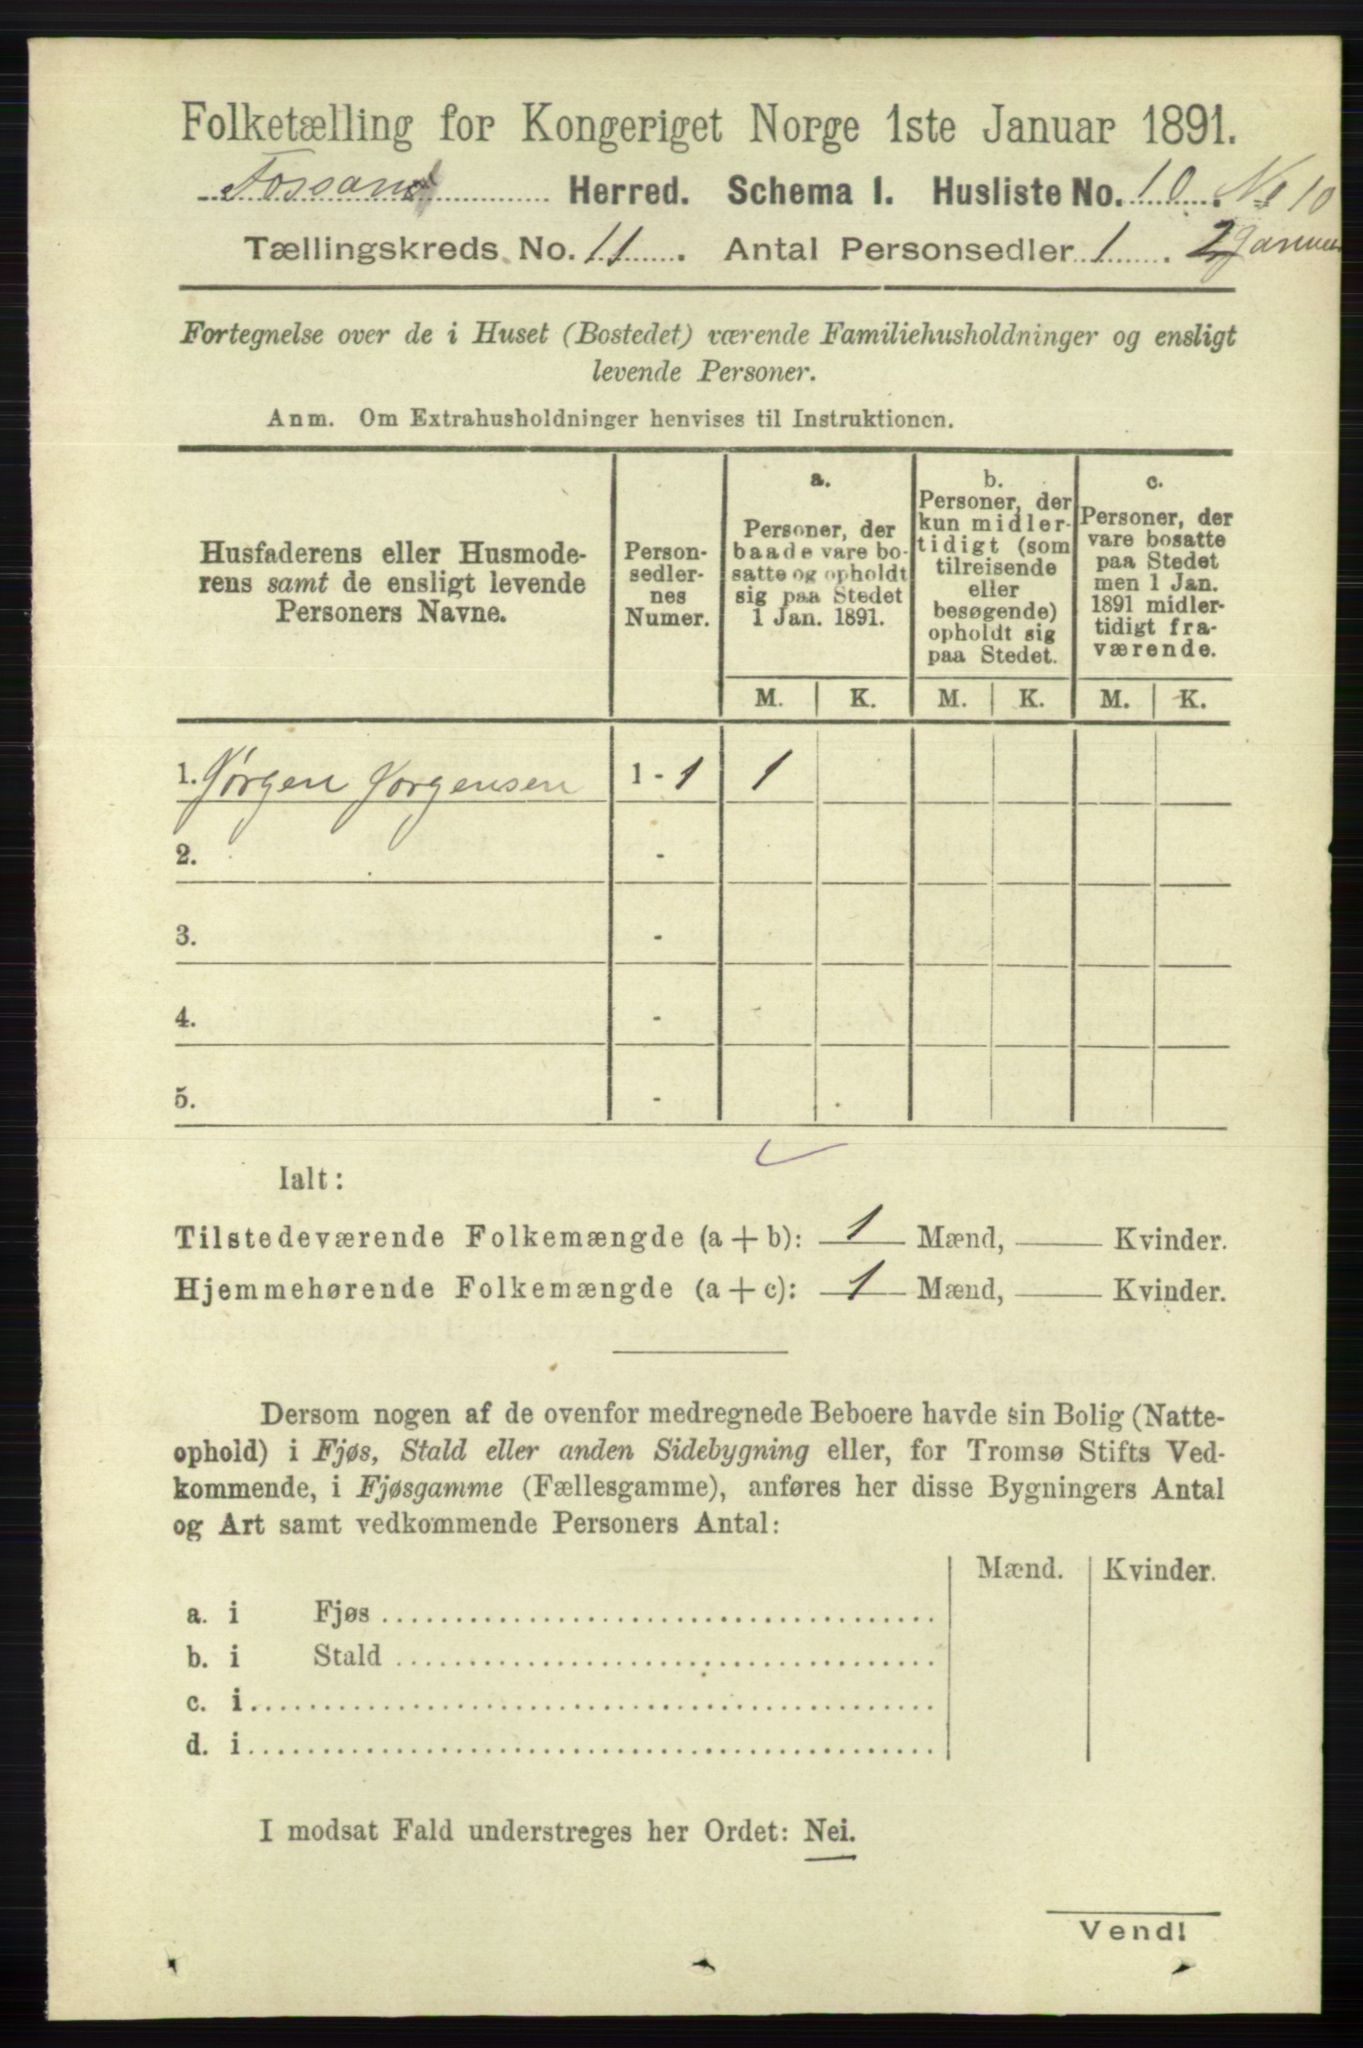 Folketælling for Kongeriget Norge 1ste Januar 1891.
Fossand Herred. Schema 1. Husliste No. 10. No 10
Tællingskreds No. 11. Antal Personsedler 1. 2 Januar
Fortegnelse over de i Huset (Bostedet) værende Familiehusholdninger og ensligt
levende Personer.
Anm. Om Extrahusholdninger henvises til Instruktionen.
Husfaderens eller Husmode-
rens samt de ensligt levende
Personers Navne.
Person-
sedler-
nes
Numer.
a.
Personer, der
baade vare bo-
satte og opholdt
sig paa Stedet
1 Jan. 1891.
b.
Personer, der
kun midler-
tidigt (som
tilreisende
eller
besøgende)
opholdt sig
paa Stedet.
c.
Personer, der
vare bosatte
paa Stedet
men 1 Jan.
1891 midler-
tidigt fra-
værende.
M. K. M. K. M. K.
1. Jørgen Jørgensen 1 - 1 1
2. -
3. -
4. -
5. -
Ialt:
Tilstedeværende Folkemængde (a + b): 1 Mænd, Kvinder.
Hjemmehørende Folkemængde (a + c): 1 Mænd, Kvinder.
Dersom nogen af de ovenfor medregnede Beboere havde sin Bolig (Natte-
ophold) i Fjøs, Stald eller anden Sidebygning eller, for Tromsø Stifts Ved-
kommende, i Fjøsgamme (Fællesgamme), anføres her disse Bygningers Antal
og Art samt vedkommende Personers Antal:
Mænd. Kvinder.
a. i Fjøs
b. i Stald
c. i
d. i
I modsat Fald understreges her Ordet: Nei.
Vend!